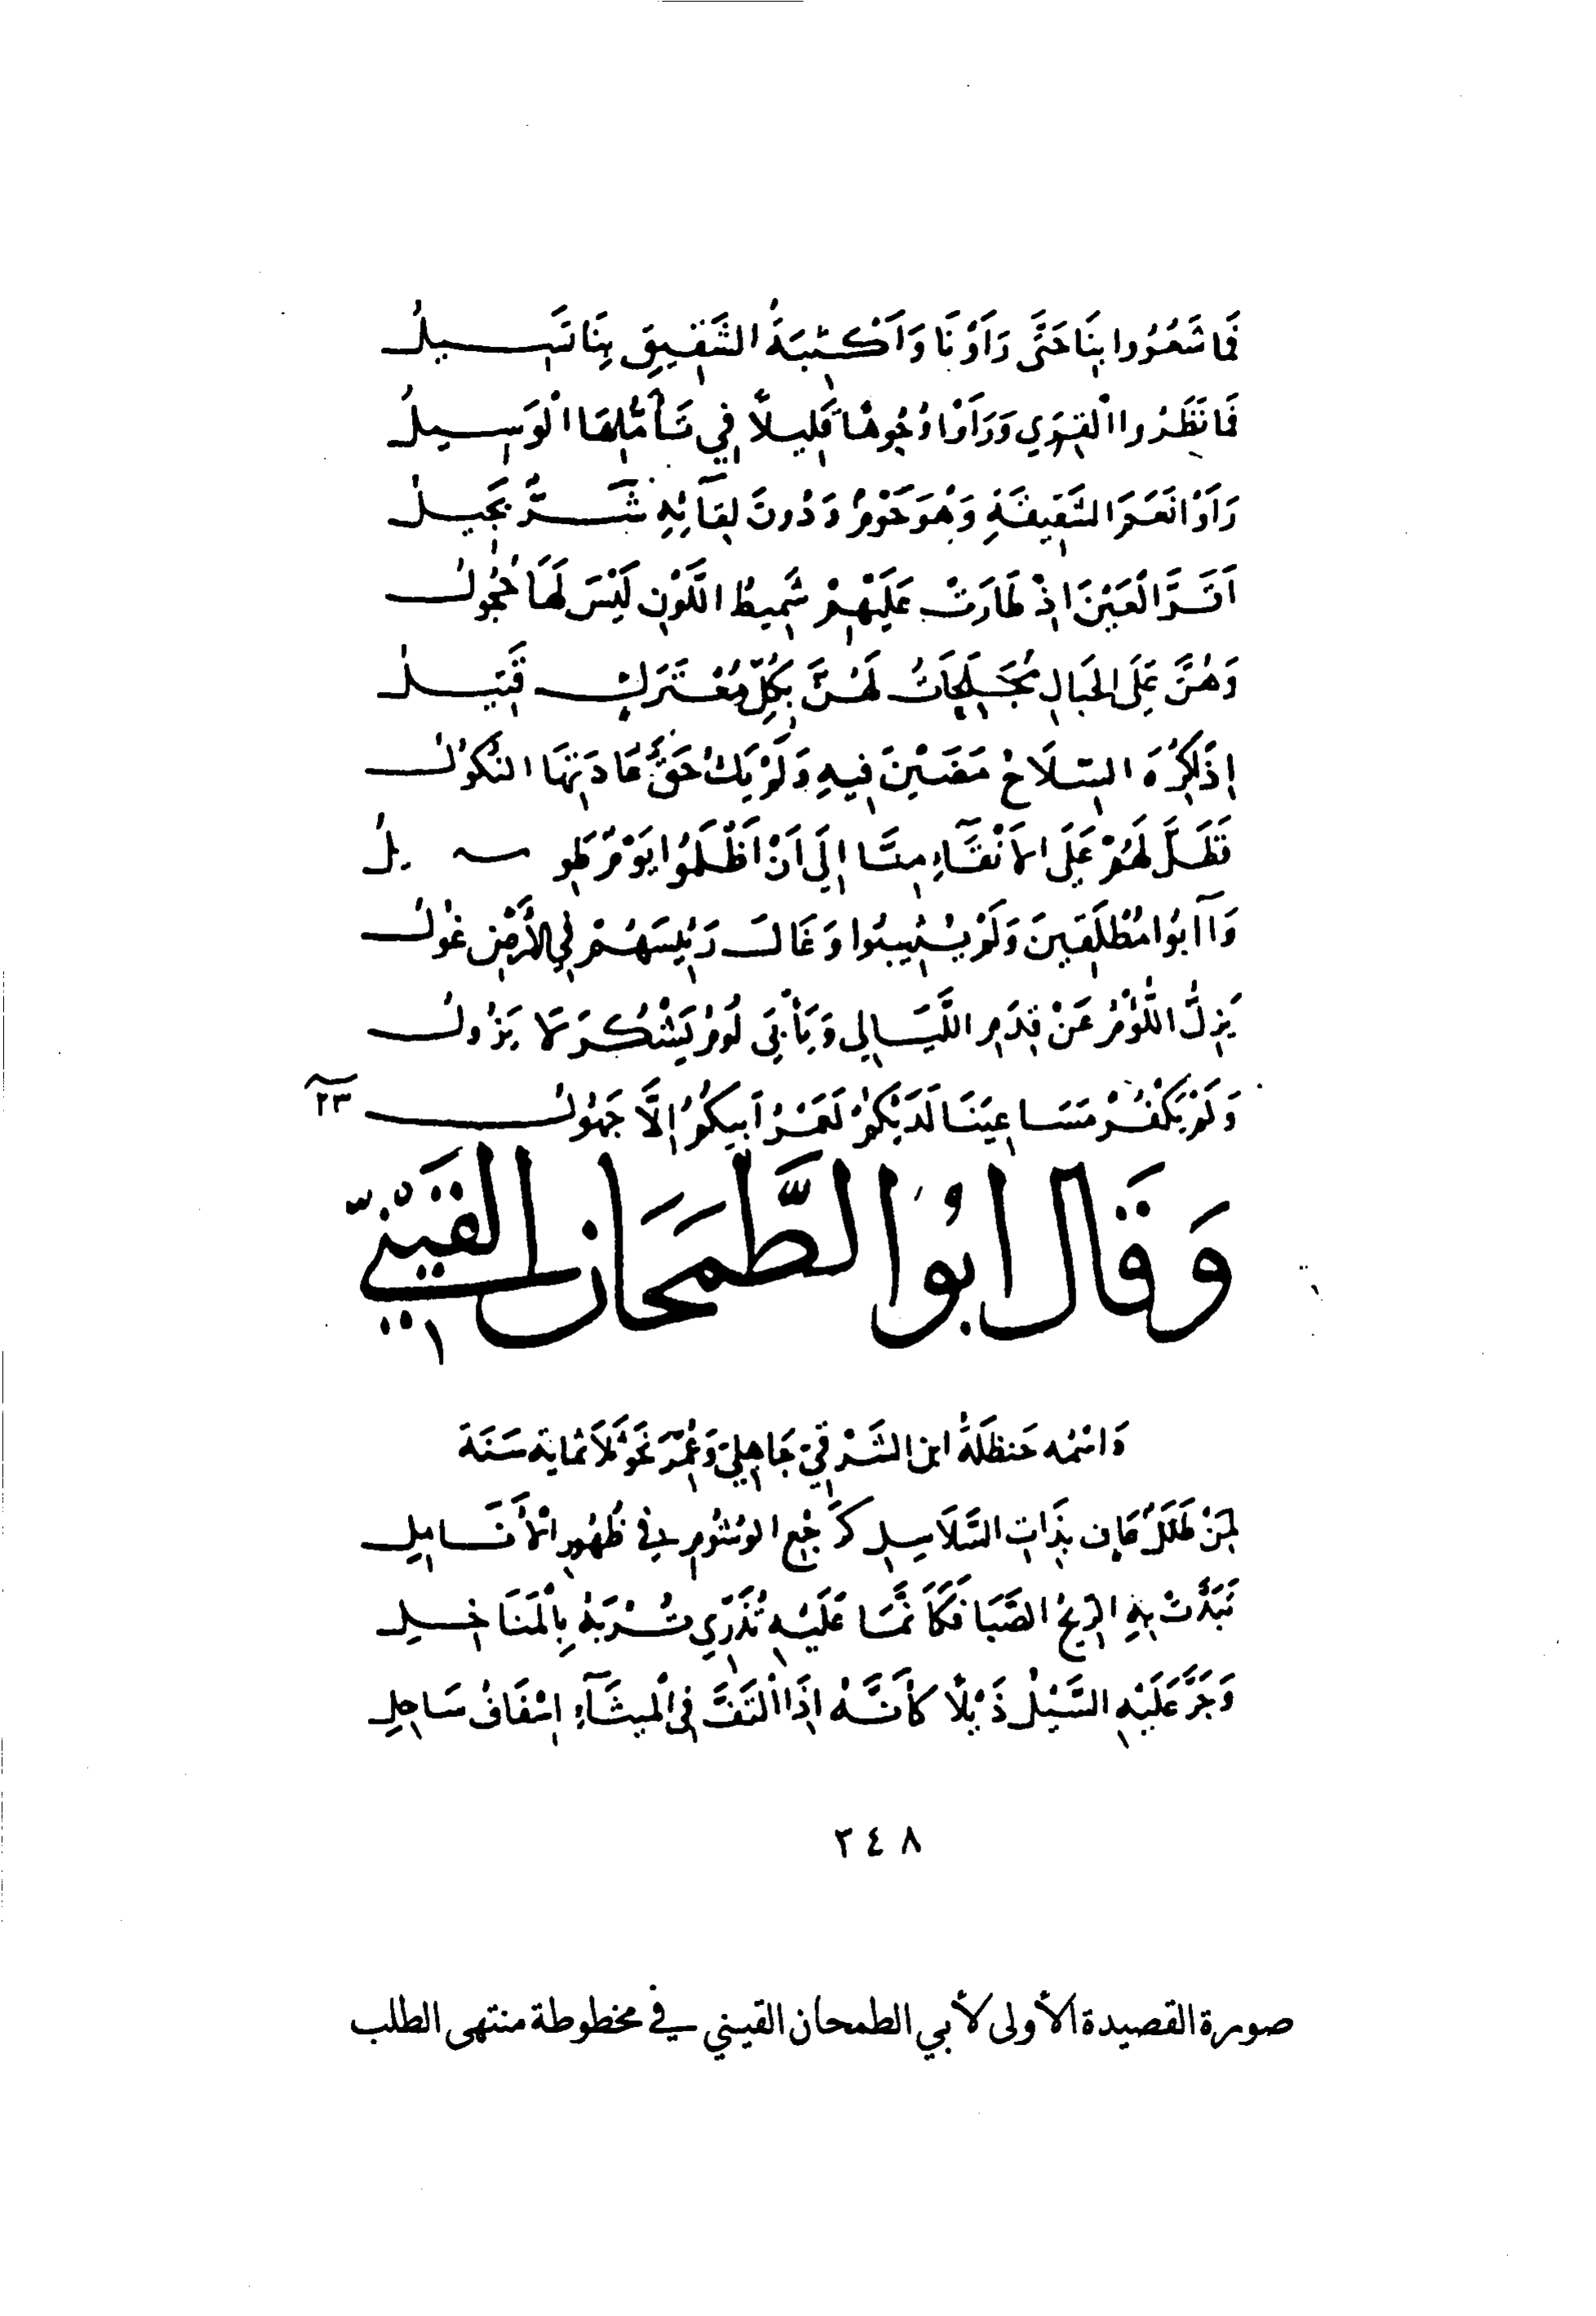 فَمَا شَعَرُوا بِنَا حَتَّى رَأَوْنَا وَأَكْثِبَةُ الشَّقِيقِ بِنَا تَسِيلُ
فَمَا نَظَرُوا الْقِرَى وَرَأَوْا وُجُوهًا قَلِيلًا فِي تَأَمُّلِهَا الْوَسِيلُ
رَأَوْا نَعَمَ الشَّقِيقَةِ وَهْوَ حَوْمٌ وَدُونَ لِقَائِهِ شَرٌّ بَجِيلُ
أَقَرَّ الْعَيْنَ إِذْ طَارَتْ عَلَيْهِمْ شَمِيطُ اللَّوْنِ لَيْسَ لَهَا حُجُولُ
وَهُنَّ عَلَى الْحِبَالِ مُجَلِّحَاتٌ لَهُنَّ بِكُلِّ مُعْتَرَكٍ قَتِيلُ
إِذَا كُرِهَ السِّلَاحُ مَضَيْنَ فِيهِ وَلَمْ يَكُ حَقَّ عَادَتِهَا النُّكُولُ
فَظَلَّ لَهُمْ عَلَى الْأَنْقَاءِ مِنَّا إِلَى أَنْ أَظْلَمُوا يَوْمٌ طَوِيلُ
وَآبُوا مُطْلَقِينَ وَلَمْ يُثِيبُوا وَغَالَتْ رَئِيسَهُمْ فِي الْأَرْضِ غُولُ
يَزِلُّ اللُّؤْمُ عَنْ قِدَمِ اللَّيَالِي وَيَأْبَى لُومُ يَشْكُرَ لَا يَزُولُ
وَلَمْ يَكْفُرْ مَسَاعِيَنَا لَدَيْكُمْ لَعَمْرُ أَبِيكُمُ إِلَّا جَهُولُ ٢٣
وَقَال ابُوا الطَّمَحَان القَيْنِيّ
وَاسْمُه حَنظَلَةُ ابن الشَّرْقِيّ جَاهِلِيّ وَعُمِّرَ نَحْوَ ثَلَاثمايَة سَنَةَ
لِمَنْ طَلَلٌ عَافٍ بِذَاتِ السَّلَاسِلِ كَرَجْعِ الْوُشُومِ فِي ظُهُورِ الْأَنَامِلِ
تَبَدَّتْ بِهِ الرِّيحُ الصَّبَا فَكَأَنَّمَا عَلَيْهِ تُذَرِّي تُرْبَهُ بِالْمَنَاخِلِ
وَجَرَّ عَلَيْهِ السَّيْلُ ذَيْلًا كَأَنَّهُ إِذَا الْتَفَّ فِي الْمَيْثَاءِ إِسْفَافُ سَاحِلِ
٣٤٨
صورة القصيدة الأولى لأبي الطمحان القيني في مخطوطة منتهى الطلب